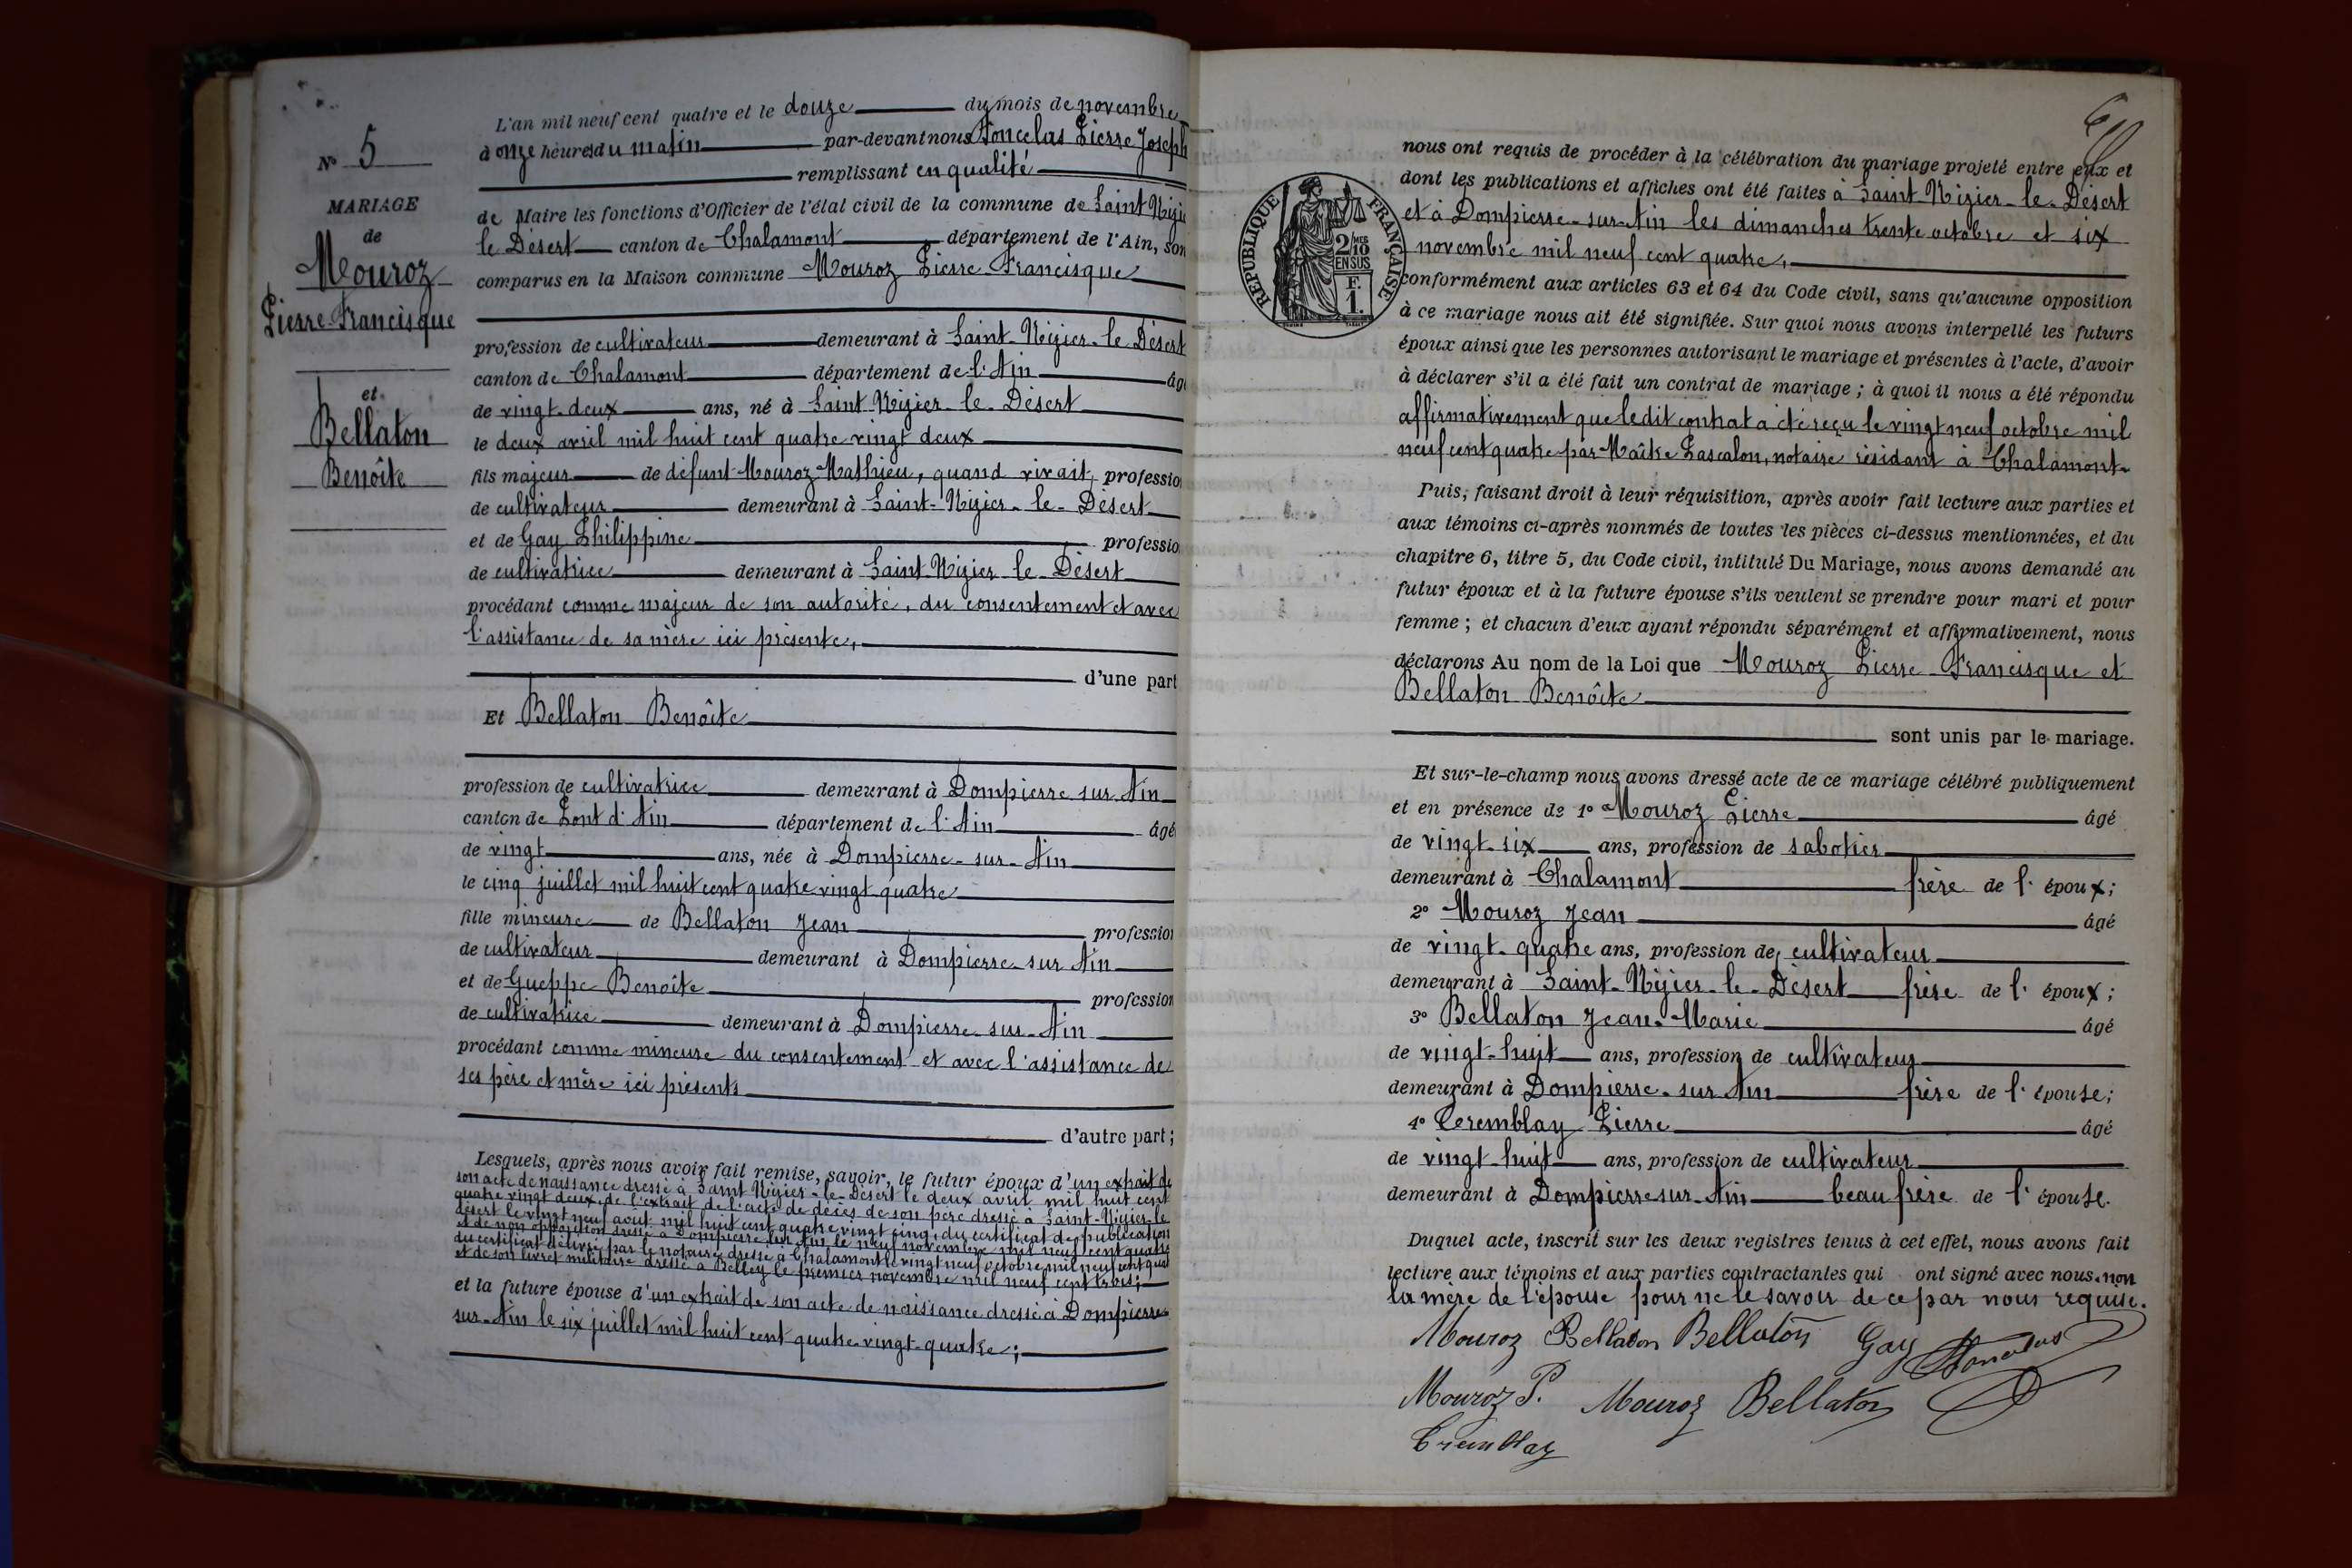 N° 5
MARIAGE
de
Mouroz
Pierre Francisque
et
Bellaton
Benoîte
L'an mil neuf cent quatre et le douze du mois de novembre
à onze heures du matin par-devant nous Poncelas Pierre Joseph
remplissant en qualité
de Maire les fonctions d'Officier de l'état civil de la commune de Saint Nizier
le Désert canton de Chalamont département de l'Ain, son
comparus en la Maison commune Mouroz Pierre Francisque
profession de cultivateur demeurant à Saint-Nizier-le-Désert
canton de Chalamont département de l'Ain âg
de vingt-deux ans, né à Saint Nizier-le-Désert
le deux avril mil huit cent quatre vingt deux
fils majeur de défunt Mouroz Mathieu, quand vivait, professio
de cultivateur demeurant à Saint-Nizier-le-Désert
et de Gay Philippine professio
de cultivatrice demeurant à Saint-Nizier le-Désert
procédant comme majeur de son autorité, du consentement et avec
l'assistance de sa mère ici présente,
d'une part
Et Bellaton Benoîte
profession de cultivatrice demeurant à Dompierre sur Ain
canton de Pont d'Ain département de l'Ain âgé
de vingt ans, née à Dompierre-sur-Ain
le cinq juillet mil huit cent quatre vingt quatre
fille mineure de Bellaton Jean profession
de cultivateur demeurant à Dompierre-sur Ain
et de Gueppe Benoîte profession
de cultivatrice demeurant à Dompierre-sur-Ain
procédant comme mineure du consentement et avec l'assistance de
ses père et mère ici présents
d'autre part;
Lesquels, après nous avoir fait remise, savoir, le futur époux d'un extrait de
son acte de naissance dressé à Saint Nizier-le-Désert le deux avril mil huit cent
quatre vingt deux, de l'extrait de l'acte de décès de son père dressé à Saint-Nizier-le
désert le vingt neuf août mil huit cent quatre vingt cinq, du certificat de publication
et de non opposition dressé à Dompierre sur Ain le neuf novembre mil neuf cent quatre
du certificat délivré par le notaire dressé à Chalamont le vingt neuf octobre mil neuf cent quat
et de son livret militaire dressé à Belley le premier novembre mil neuf cent trois;
et la future épouse d'un extrait de son acte de naissance dressé à Dompierre
sur-Ain le six juillet mil huit cent quatre-vingt-quatre;
nous ont requis de procéder à la célébration du mariage projeté entre eux et
dont les publications et affiches ont été faites à Saint-Nizier-le-Désert
et à Dompierre-sur-Ain les dimanches trente octobre et six
novembre mil neuf cent quatre,
RÉPUBLIQUE FRANÇAISE
2/MES
10
EN SUS
F.
1.
conformément aux articles 63 et 64 du Code civil, sans qu'aucune opposition
à ce mariage nous ait été signifiée. Sur quoi nous avons interpellé les futurs
époux ainsi que les personnes autorisant le mariage et présentes à l'acte, d'avoir
à déclarer s'il a été fait un contrat de mariage ; à quoi il nous a été répondu
affirmativement que ledit contrat a été reçu le vingt neuf octobre mil
neuf cent quatre par Maître Lascalon, notaire résidant à Chalamont-
Puis, faisant droit à leur réquisition, après avoir fait lecture aux parties et
aux témoins ci-après nommés de toutes les pièces ci-dessus mentionnées, et du
chapitre 6, titre 5, du Code civil, intitulé Du Mariage, nous avons demandé au
futur époux et à la future épouse s'ils veulent se prendre pour mari et pour
femme ; et chacun d'eux ayant répondu séparément et affirmativement, nous
déclarons Au nom de la Loi que Mouroz Pierre Francisque et
Bellaton Benoîte
sont unis par le mariage.
Et sur-le-champ nous avons dressé acte de ce mariage célébré publiquement
et en présence de 1° Mouroz Pierre âgé
de vingt-six ans, profession de sabotier
demeurant à Chalamont frère de l' époux;
2° Mouroz Jean âgé
de vingt-quatre ans, profession de cultivateur
demeurant à Saint-Nizier-le-Désert frère de l' époux;
3° Bellaton Jean-Marie âgé
de vingt-huit ans, profession de cultivateur
demeurant à Dompierre-sur Ain frère de l' épouse;
4° Tremblay Pierre âgé
de vingt-huit ans, profession de cultivateur
demeurant à Dompierre sur-Ain beau frère de l' épouse.
Duquel acte, inscrit sur les deux registres tenus à cet effet, nous avons fait
lecture aux témoins et aux parties contractantes qui ont signé avec nous, non
la mère de l'épouse pour ne le savoir de ce par nous requise.
Mouroz Bellaton Bellaton Gay Poncelas
Mouroz P. Mouroz Bellaton
Tremblay